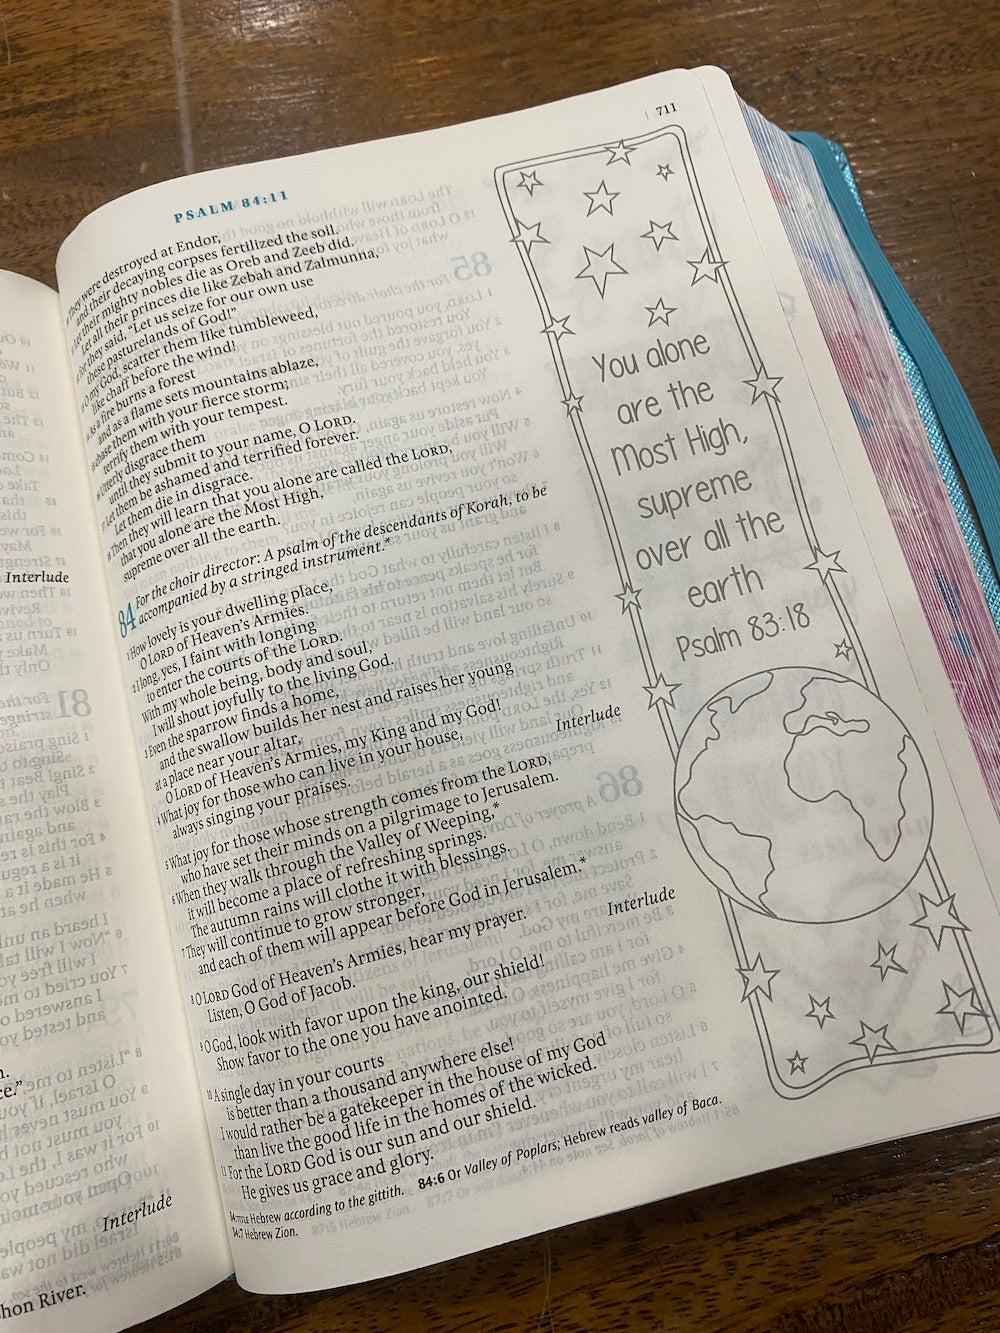 PSALM 84:11
711
They were destroyed at Endor,
and their decaying corpses fertilized the soil.
Let their mighty nobles die as Oreb and Zeeb did.
Let all their princes die like Zebah and Zalmunna,
for they said, “Let us seize for our own use
these pasturelands of God!”
O my God, scatter them like tumbleweed,
like chaff before the wind!
As a fire burns a forest
and as a flame sets mountains ablaze,
chase them with your fierce storm;
terrify them with your tempest.
Utterly disgrace them
until they submit to your name, O LORD.
Let them be ashamed and terrified forever.
Let them die in disgrace.
Then they will learn that you alone are called the LORD,
that you alone are the Most High,
supreme over all the earth.
84 For the choir director: A psalm of the descendants of Korah, to be
accompanied by a stringed instrument.*
1 How lovely is your dwelling place,
O LORD of Heaven’s Armies.
2 I long, yes, I faint with longing
to enter the courts of the LORD.
With my whole being, body and soul,
I will shout joyfully to the living God.
3 Even the sparrow finds a home,
and the swallow builds her nest and raises her young
at a place near your altar,
O LORD of Heaven’s Armies, my King and my God!
4 What joy for those who can live in your house,
always singing your praises. Interlude
5 What joy for those whose strength comes from the LORD,
who have set their minds on a pilgrimage to Jerusalem.
6 When they walk through the Valley of Weeping,*
it will become a place of refreshing springs.
The autumn rains will clothe it with blessings.
7 They will continue to grow stronger,
and each of them will appear before God in Jerusalem.*
Interlude
8 O LORD God of Heaven’s Armies, hear my prayer.
Listen, O God of Jacob.
9 O God, look with favor upon the king, our shield!
Show favor to the one you have anointed.
10 A single day in your courts
is better than a thousand anywhere else!
I would rather be a gatekeeper in the house of my God
than live the good life in the homes of the wicked.
11 For the LORD God is our sun and our shield.
He gives us grace and glory.
84:TITLE Hebrew according to the gittith. 84:6 Or Valley of Poplars; Hebrew reads valley of Baca.
84:7 Hebrew Zion.
You alone
are the
Most High,
supreme
over all the
earth
Psalm 83:18
Interlude
Interlude
hon River.